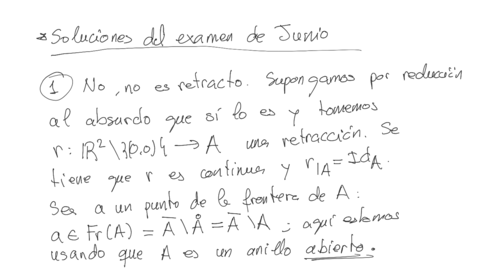 * Soluciones del examen de Junio
① No, no es retracto. Supongamos por reducción
al absurdo que sí lo es y tomemos
r: ℝ² \ {(0,0)} → A una retracción. Se
tiene que r es continua y r|A = IdA.
Sea a un punto de la frontera de A:
a ∈ Fr(A) = Ā \ Å = Ā \ A ; aquí estamos
usando que A es un anillo abierto.